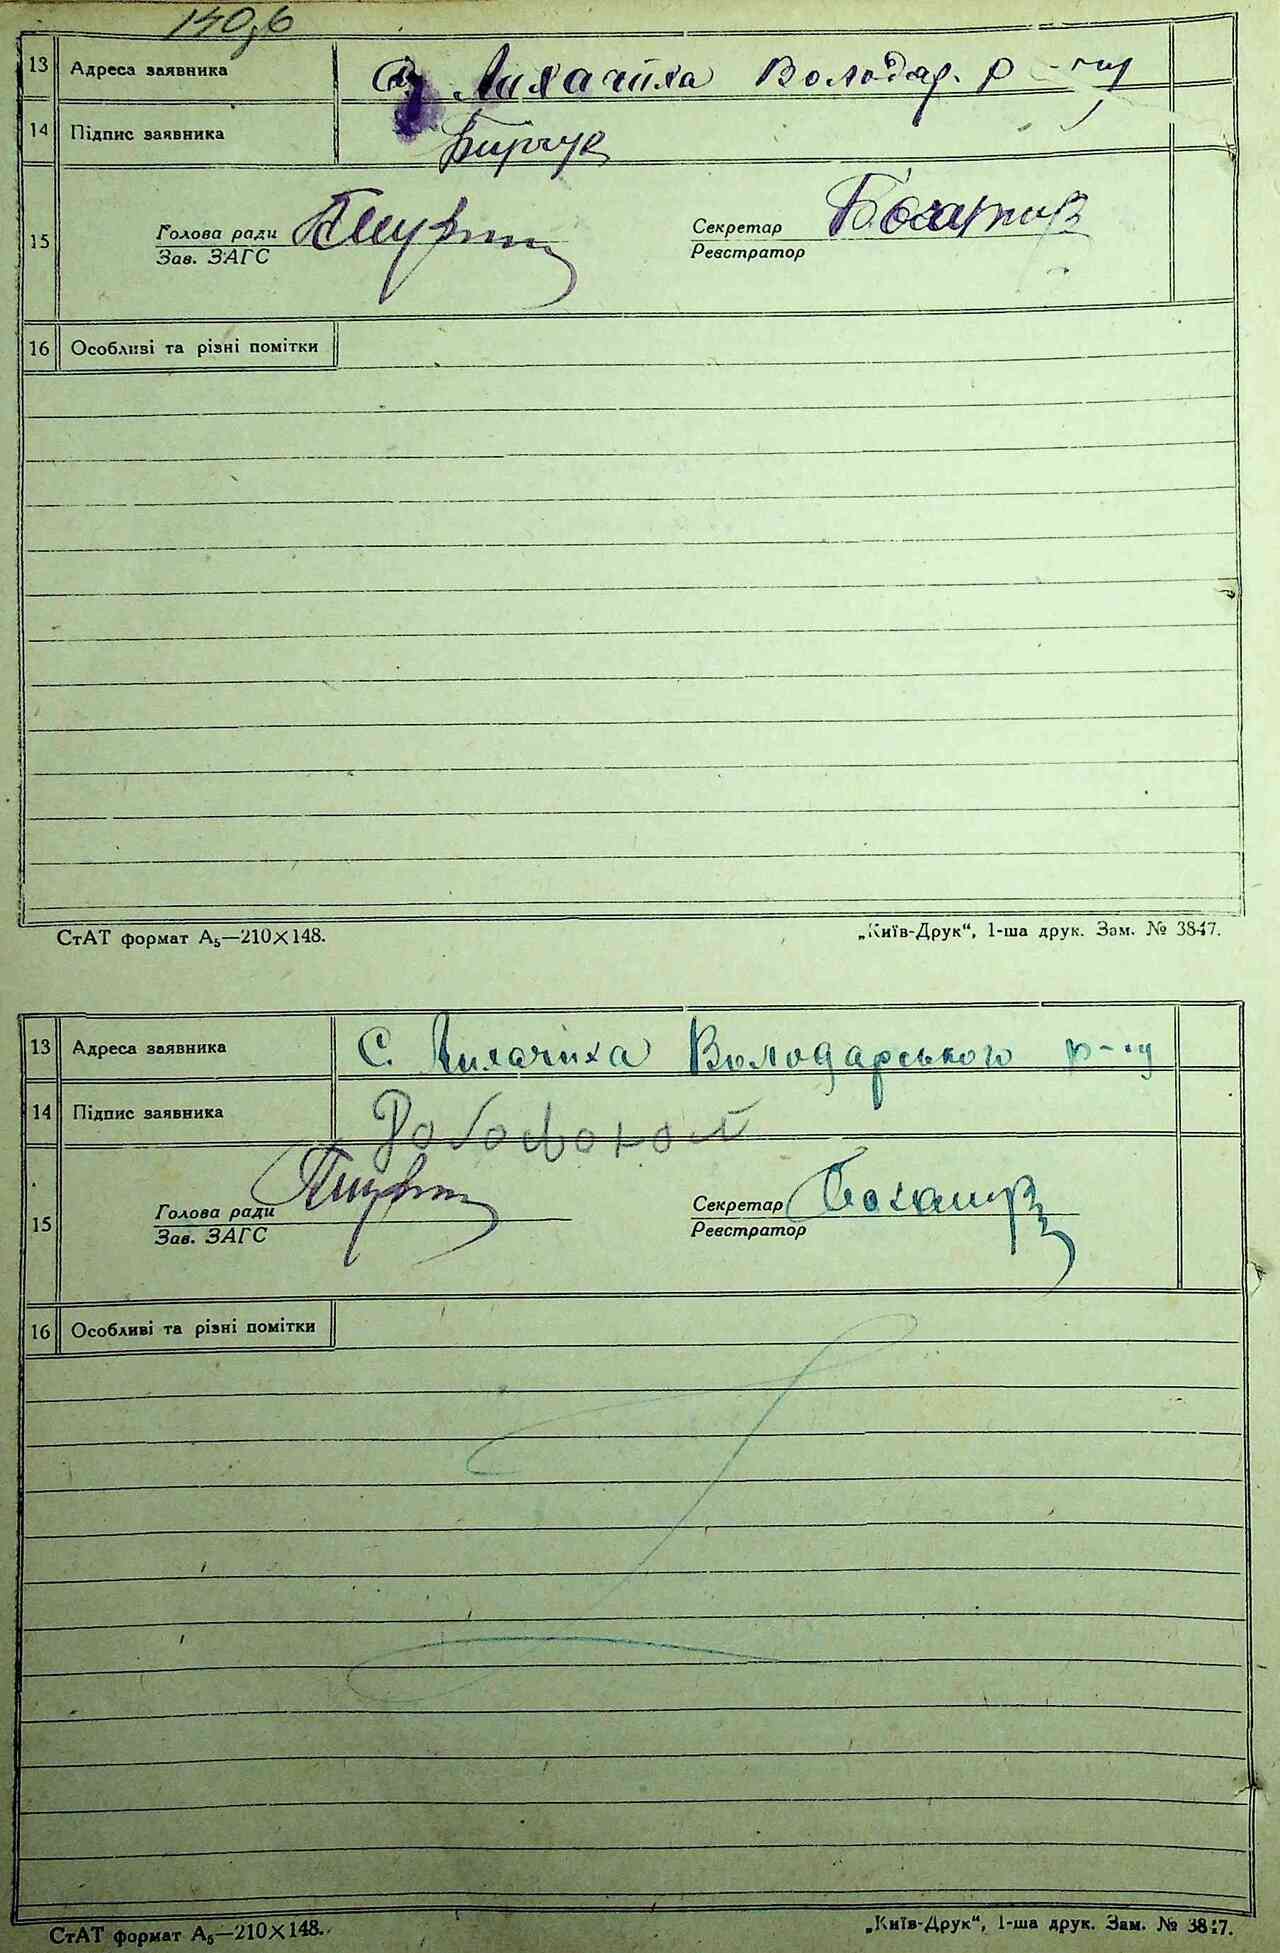 140зв
13 Адреса заявника С. Лихачиха Володар. р-ну
14 Підпис заявника
15 Голова ради Секретар
Зав. ЗАГС Реєстратор
16 Особливі та різні помітки
СтАТ формат А₅—210×148. „Київ-Друк“, 1-ша друк. Зам. № 3847.
13 Адреса заявника С. Лихачиха Володарського р-ну
14 Підпис заявника
15 Голова ради Секретар
Зав. ЗАГС Реєстратор
16 Особливі та різні помітки
СтАТ формат А₅—210×148. „Київ-Друк“, 1-ша друк. Зам. № 3847.